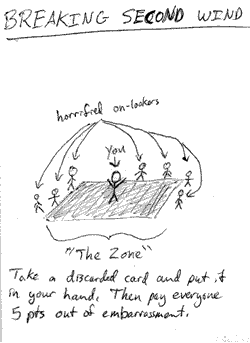 BREAKING SECOND WIND
horrified on-lookers
you
"The Zone"
Take a discarded card and put it
in your hand. Then pay everyone
5 pts out of embarrassment.